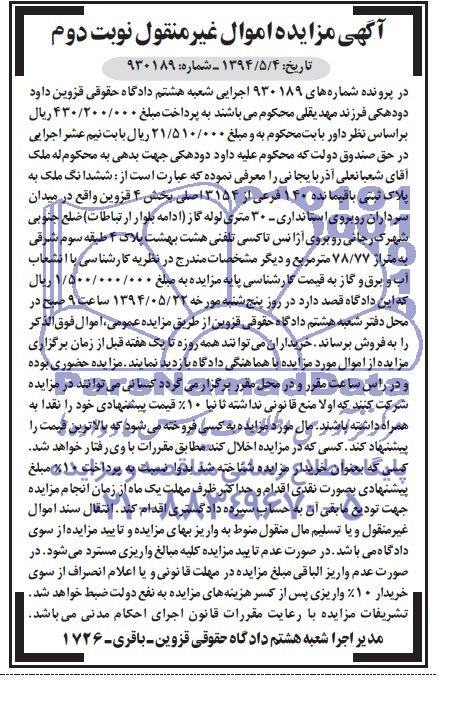 آگهی مزایده اموال غیرمنقول نوبت دوم
تاریخ: ۱۳۹۴/۵/۴ ـ شماره: ۹۳۰۱۸۹
در پرونده شماره‌های ۹۳۰۱۸۹ اجرایی شعبه هشتم دادگاه حقوقی قزوین داود
دودهکی فرزند مهدیقلی محکوم می باشند به پرداخت مبلغ ۴۳۰/۲۰۰/۰۰۰ ریال
براساس نظر داور بابت محکوم به و مبلغ ۲۱/۵۱۰/۰۰۰ ریال بابت نیم عشر اجرایی
در حق صندوق دولت که محکوم علیه داود دودهکی جهت بدهی به محکوم له ملک
آقای شعبانعلی آذربایجانی را معرفی نموده که عبارت است از: ششدانگ ملک به
پلاک ثبتی باقیمانده ۱۴۰ فرعی از ۲۱۵۴ اصلی بخش ۴ قزوین واقع در میدان
سرداران روبروی استانداری ـ ۳۰ متری لوله گاز (ادامه بلوار ارتباطات) ضلع جنوبی
شهرک رجائی روبروی آژانس تاکسی تلفنی هشت بهشت پلاک ۲ طبقه سوم شرقی
به متراژ ۷۸/۷۷ مترمربع و دیگر مشخصات مندرج در نظریه کارشناسی با انشعاب
آب و برق و گاز به قیمت کارشناسی پایه مزایده به مبلغ ۱/۵۰۰/۰۰۰/۰۰۰ ریال
که این دادگاه قصد دارد در روز پنج‌شنبه مورخه ۱۳۹۴/۰۵/۲۲ ساعت ۹ صبح در
محل دفتر شعبه هشتم دادگاه حقوقی قزوین از طریق مزایده عمومی، اموال فوق‌الذکر
را به فروش برساند. خریداران می توانند همه روزه تا یک هفته قبل از زمان برگزاری
مزایده از اموال مورد مزایده با هماهنگی دادگاه بازدید نمایند. مزایده حضوری بوده
و در راس ساعت مقرر و در محل مقرر برگزار می گردد کسانی می توانند در مزایده
شرکت کنند که اولا منع قانونی نداشته ثانیا ۱۰٪ قیمت پیشنهادی خود را نقدا به
همراه داشته باشند. مال مورد مزایده به کسی فروخته می شود که بالاترین قیمت را
پیشنهاد کند. کسی که در مزایده اخلال کند مطابق مقررات با وی رفتار خواهد شد.
کسی که بعنوان خریدار مزایده شناخته شد بدوا نسبت به پرداخت ۱۰٪ مبلغ
پیشنهادی بصورت نقدی اقدام و حداکثر ظرف مهلت یک ماه از زمان انجام مزایده
جهت تودیع مابقی آن به حساب سپرده دادگستری اقدام کند. انتقال سند اموال
غیرمنقول و یا تسلیم مال منقول منوط به واریز بهای مزایده و تایید مزایده از سوی
دادگاه می باشد. در صورت عدم تایید مزایده کلیه مبالغ واریزی مسترد می شود. در
صورت عدم واریز الباقی مبلغ مزایده در مهلت قانونی و یا اعلام انصراف از سوی
خریدار ۱۰٪ واریزی پس از کسر هزینه‌های مزایده به نفع دولت ضبط خواهد شد.
تشریفات مزایده با رعایت مقررات قانون اجرای احکام مدنی می باشد.
مدیر اجرا شعبه هشتم دادگاه حقوقی قزوین ـ باقری ـ ۱۷۲۶
ParsNamadData
۰۲۱-۸۸۳۴۹۶۷۰-۵